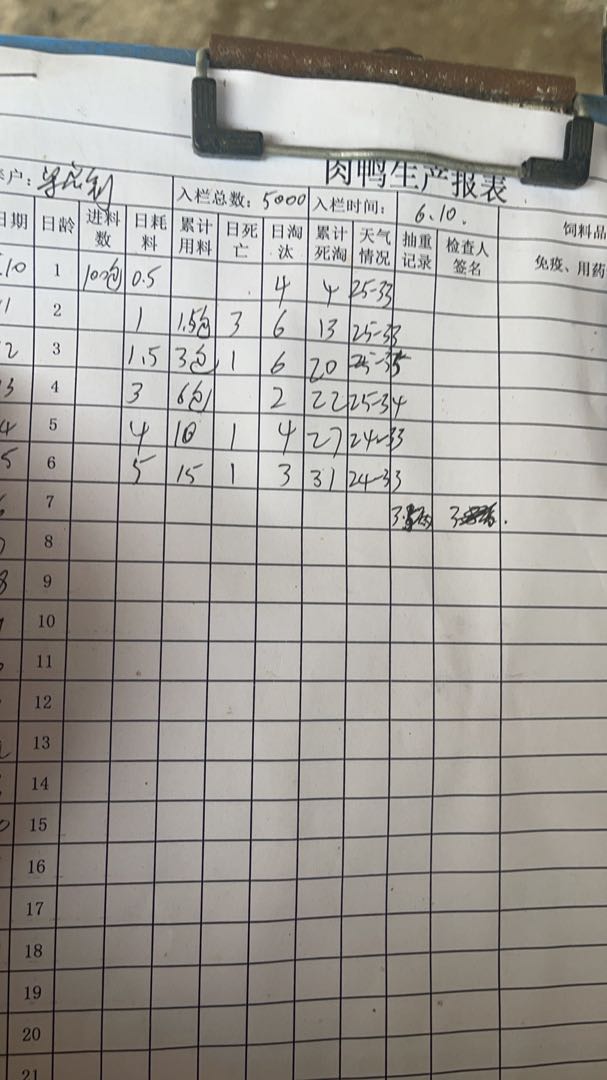 肉鸭生产报表
户: 入栏总数: 5000 入栏时间: 6.10.
日期 日龄 进料数 日耗料 累计用料 日死亡 日淘汰 累计死淘 天气情况 抽重记录 检查人签名 饲料品
免疫、用药
.10 1 100包 0.5 4 4 25-33
1 2 1 1.5包 3 6 13 25-33
2 3 1.5 3包 1 6 20
3 4 3 6包 2 22 25-34
4 5 4 10 1 4 27 24-33
5 6 5 15 1 3 31 24-33
7
8
9
10
11
12
13
14
15
16
17
18
19
20
21